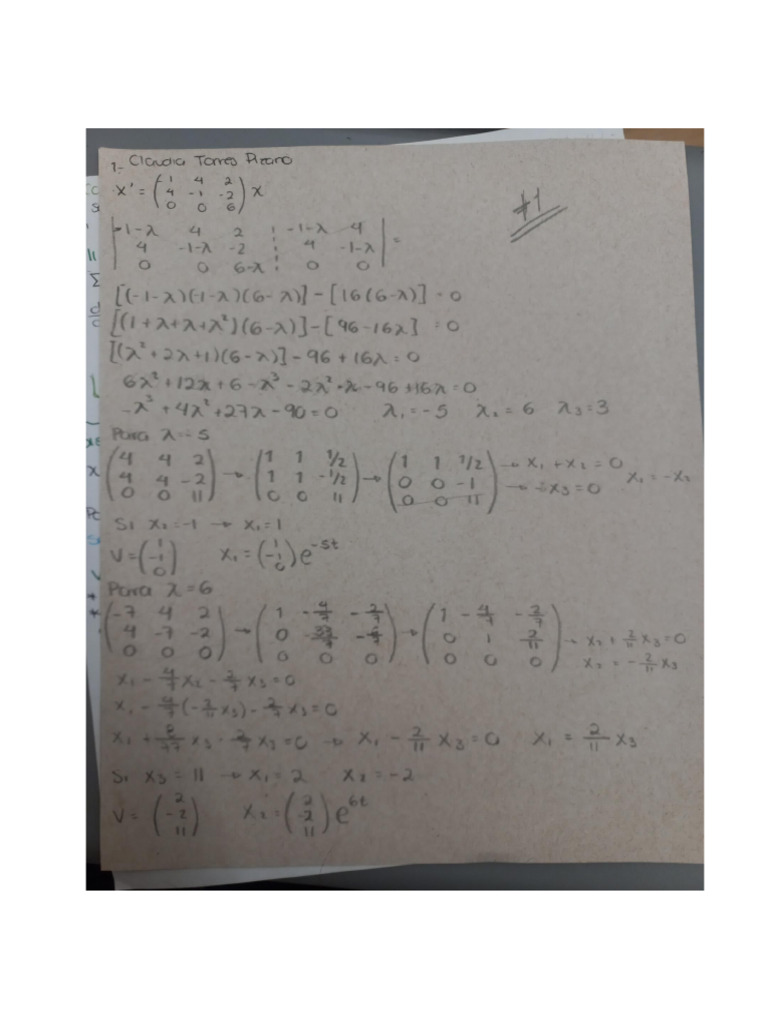 1.- Claudia Torres Pizano
#1
X' = (-1 4 2
4 -1 -2
0 0 6) X
|-1-λ 4 2 ¦ -1-λ 4|
|4 -1-λ -2 ¦ 4 -1-λ| =
|0 0 6-λ ¦ 0 0|
[(-1-λ)(-1-λ)(6-λ)] - [16(6-λ)] = 0
[(1+λ+λ+λ²)(6-λ)] - [96-16λ] = 0
[(λ²+2λ+1)(6-λ)] - 96 + 16λ = 0
6λ² + 12λ + 6 - λ³ - 2λ² - λ - 96 + 16λ = 0
-λ³ + 4λ² + 27λ - 90 = 0 λ₁ = -5 λ₂ = 6 λ₃ = 3
Para λ = -5
(4 4 2) → (1 1 1/2) → (1 1 1/2) → x₁ + x₂ = 0
(4 4 -2) (1 1 -1/2) (0 0 -1) → -x₃ = 0 x₁ = -x₂
(0 0 11) (0 0 11) (0 0 11)
Si x₂ = -1 → x₁ = 1
V = (1 -1 0) X₁ = (1 -1 0) e^-5t
Para λ = 6
(-7 4 2) → (1 -4/7 -2/7) → (1 -4/7 -2/7)
(4 -7 -2) (0 -33/7 -6/7) (0 1 2/11) → x₂ + 2/11 x₃ = 0
(0 0 0) (0 0 0) (0 0 0) x₂ = -2/11 x₃
x₁ - 4/7 x₂ - 2/7 x₃ = 0
x₁ - 4/7 (-2/11 x₃) - 2/7 x₃ = 0
x₁ + 8/77 x₃ - 2/7 x₃ = 0 → x₁ - 2/11 x₃ = 0 x₁ = 2/11 x₃
Si x₃ = 11 → x₁ = 2 x₂ = -2
V = (2 -2 11) X₂ = (2 -2 11) e^6t